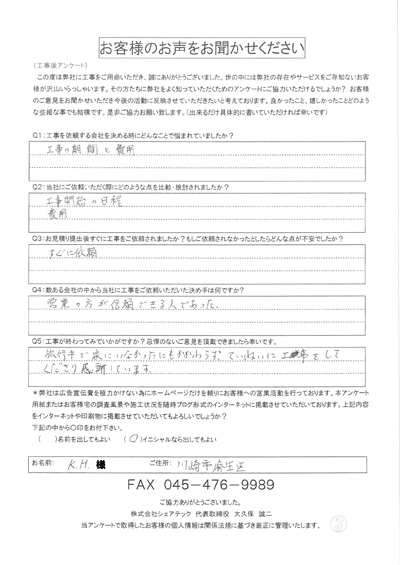 お客様のお声をお聞かせください
(工事後アンケート)
この度は弊社に工事をご用命いただき、誠にありがとうございました。世の中には弊社の存在やサービスをご存知ないお客
様が沢山いらっしゃいます。その方たちに弊社をよく知っていただくためのアンケートにご協力いただけるでしょうか? お客様
のご意見をお聞かせいただき今後の活動に反映させていただきたいと考えております。良かったこと、嬉しかったことどのよう
な些細な事でも結構です、是非ご協力お願い致します。(出来るだけ具体的に書いていただければ幸いです)
Q1:工事を依頼する会社を決める時にどんなことで悩まれていましたか?
工事の期間と費用
Q2:当社にご依頼いただく際にどのような点を比較・検討されましたか?
工事開始の日程
費用
Q3:お見積り提出後すぐに工事をご依頼されましたか?もしご依頼されなかったとしたらどんな点が不安でしたか?
すぐに依頼
Q4:数ある会社の中から当社に工事をご依頼いただいた決め手は何ですか?
営業の方が信頼できる人であった。
Q5:工事が終わってみていかがですか?忌憚のないご意見を頂戴できましたら幸いです。
旅行中で家にいなかったにもかかわらず、ていねいに工事をして
くださり感謝しています。
*弊社は広告宣伝費を極力かけない為にホームページだけを頼りにお客様への営業活動を行っております。本アンケート
用紙またはお客様宅の調査風景や施工状況を随時ブログ形式のインターネットに掲載させていただいております。上記内容
をインターネットや印刷物に掲載させていただいてもよろしいでしょうか?
下記の中から〇印をお付下さい。
( )名前を出してもよい (〇)イニシャルなら出してもよい
お名前: K.H. 様 ご住所: 川崎市麻生区
FAX 045-476-9989
ご協力ありがとうございました。
株式会社シェアテック 代表取締役 大久保 誠二
当アンケートで取得したお客様の個人情報は関係法規に基づき厳正に管理いたします。